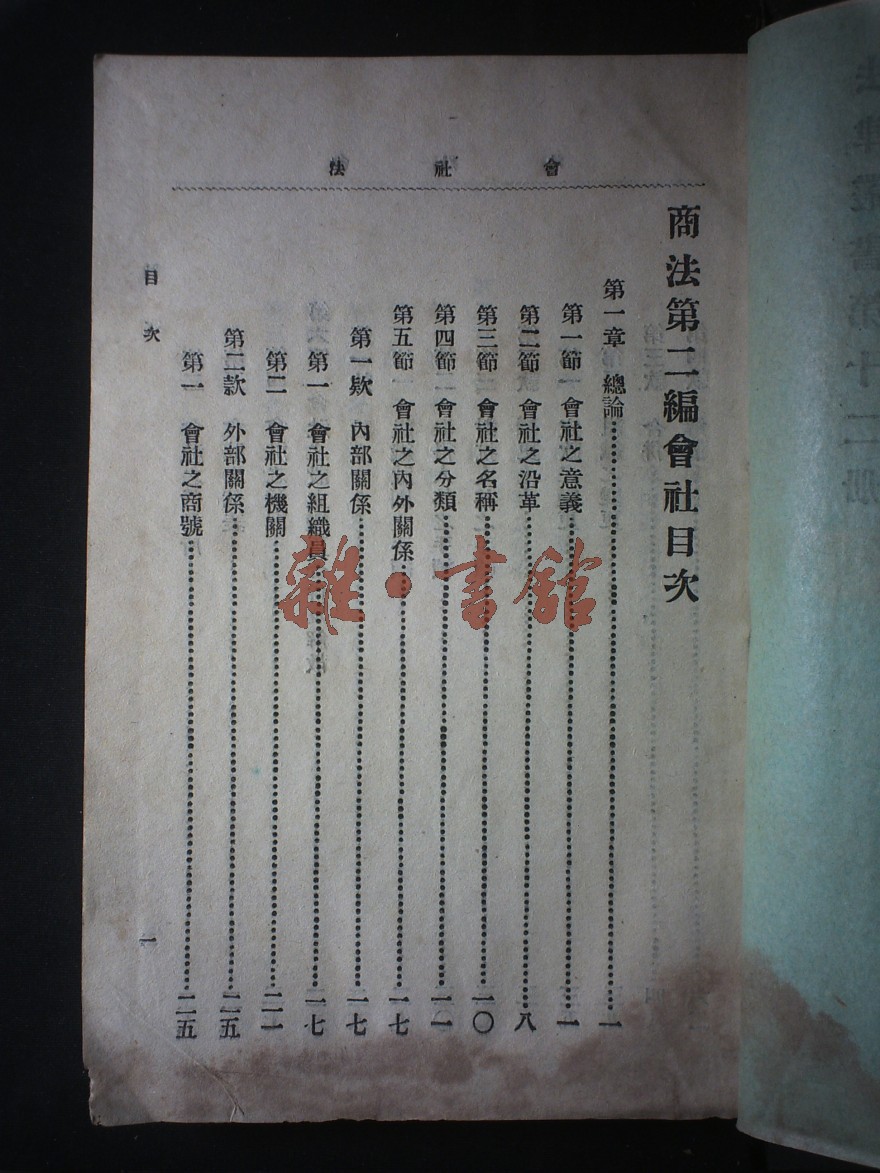 會社法
商法第二編會社目次
第一章 總論……一
第一節 會社之意義……一
第二節 會社之沿革……八
第三節 會社之名稱……一〇
第四節 會社之分類……一一
第五節 會社之內外關係……一七
第一款 內部關係……一七
第一 會社之組織員……一七
第二 會社之機關……二一
第二款 外部關係……二五
第一 會社之商號……二五
目次
一
雜·書館
法律叢書第十二册